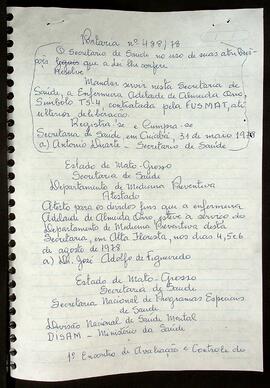 Portaria nº 498/78
O Secretário de Saúde no uso de suas atribui
ções legais que a lei lhe confere
Resolve
Mandar servir nesta Secretaria de
Saúde, a Enfermeira Adelaide de Almeida Orro,
Símbolo TS-4, contratada pela FUSMAT, até
ulterior deliberação.
Registra-se e Cumpra-se
Secretaria de Saúde em Cuiabá, 31 de maio 1978
a) Antonio Duarte - Secretário de Saúde
Estado de Mato-Grosso
Secretaria de Saúde
Departamento de Medicina Preventiva
Atestado
Atesto para os devidos fins que a enfermeira
Adelaide de Almeida Orro, esteve a serviço do
Departamento de Medicina Preventiva desta
Secretaria, em Alta Floresta, nos dias 4, 5 e 6
de agosto de 1978
a) Dr. José Adolfo de Figueiredo
Estado de Mato-Grosso
Secretaria de Saúde
Secretaria Nacional de Programas Especiais
de Saúde
Divisão Nacional de Saúde Mental
DISAM - Ministério da Saúde
1º Encontro de Avaliação e Controle do